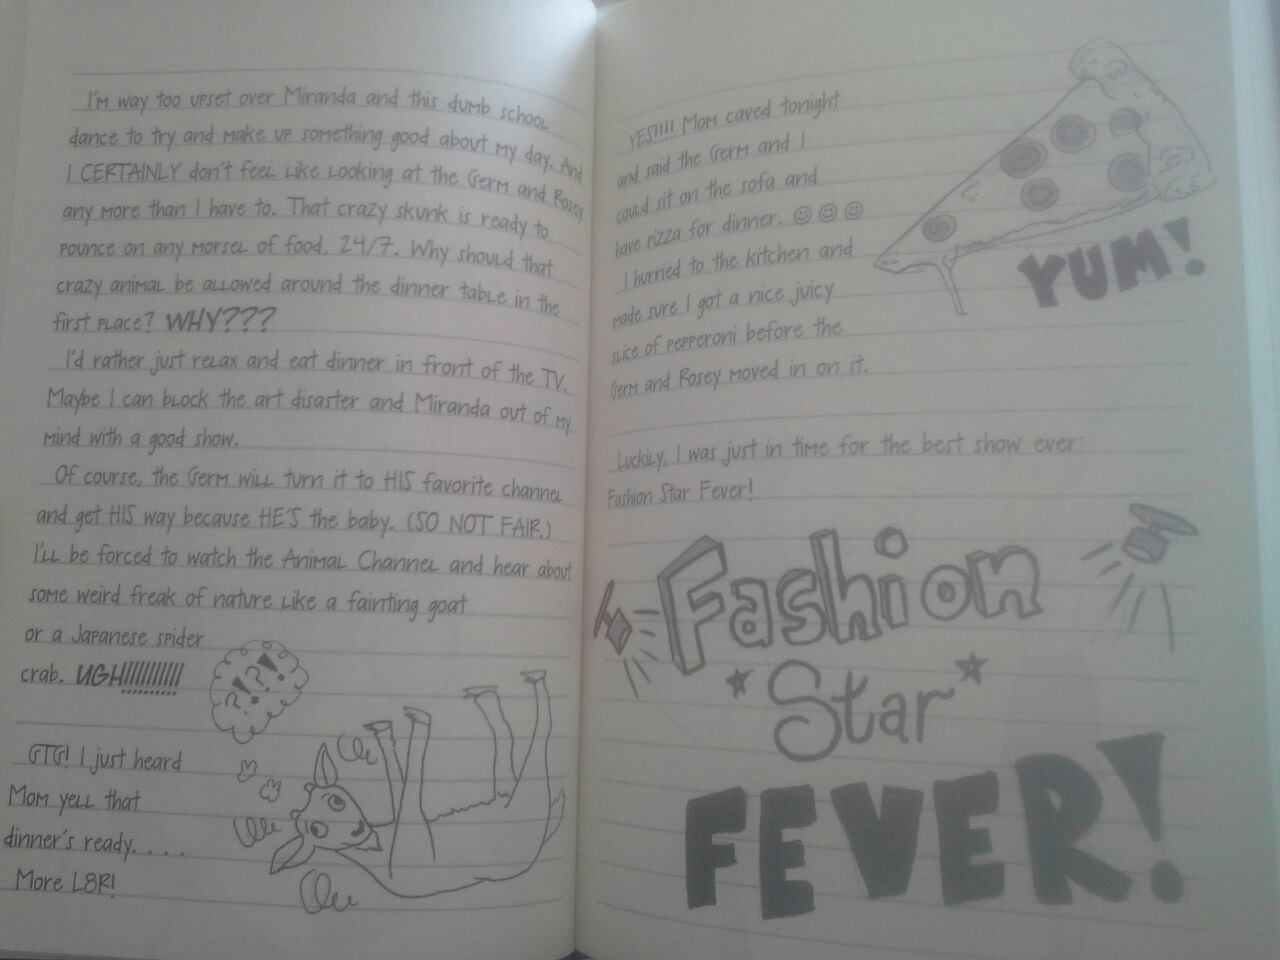 I'm way too upset over Miranda and this dumb school
dance to try and make up something good about my day. And
I CERTAINLY don't feel like looking at the Germ and Rosey
any more than I have to. That crazy skunk is ready to
pounce on any morsel of food, 24/7. Why should that
crazy animal be allowed around the dinner table in the
first place? WHY???
I'd rather just relax and eat dinner in front of the TV.
Maybe I can block the art disaster and Miranda out of my
mind with a good show.
Of course, the Germ will turn it to HIS favorite channel
and get HIS way because HE'S the baby. (SO NOT FAIR.)
I'll be forced to watch the Animal Channel and hear about
some weird freak of nature like a fainting goat
or a Japanese spider
crab. UGH!!!!!!!!!!!
?!?!
GTG! I just heard
Mom yell that
dinner's ready. . . .
More L8R!
YES!!!! Mom caved tonight
and said the Germ and I
could sit on the sofa and
have pizza for dinner. ☺ ☺ ☺
I hurried to the kitchen and
made sure I got a nice juicy
slice of pepperoni before the
Germ and Rosey moved in on it.
YUM!
Luckily, I was just in time for the best show ever:
Fashion Star Fever!
Fashion
Star
FEVER!